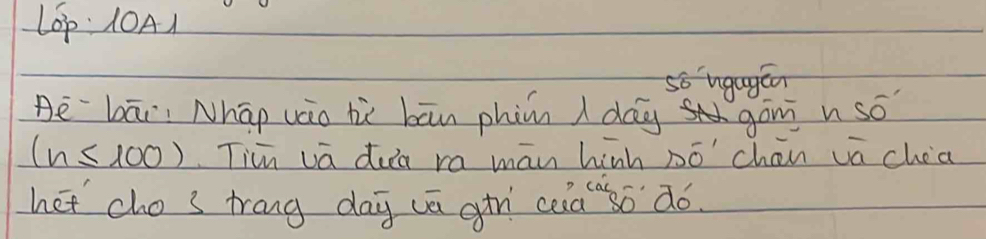 Lớp: 10A1
Đề bài: Nhập vào từ bàn phím 1 dãy số nguyên gồm n số
(n ≤ 100). Tìm và đưa ra màn hình số chẵn và chia
hết cho 3 trong dãy và gtrị của các số đó.